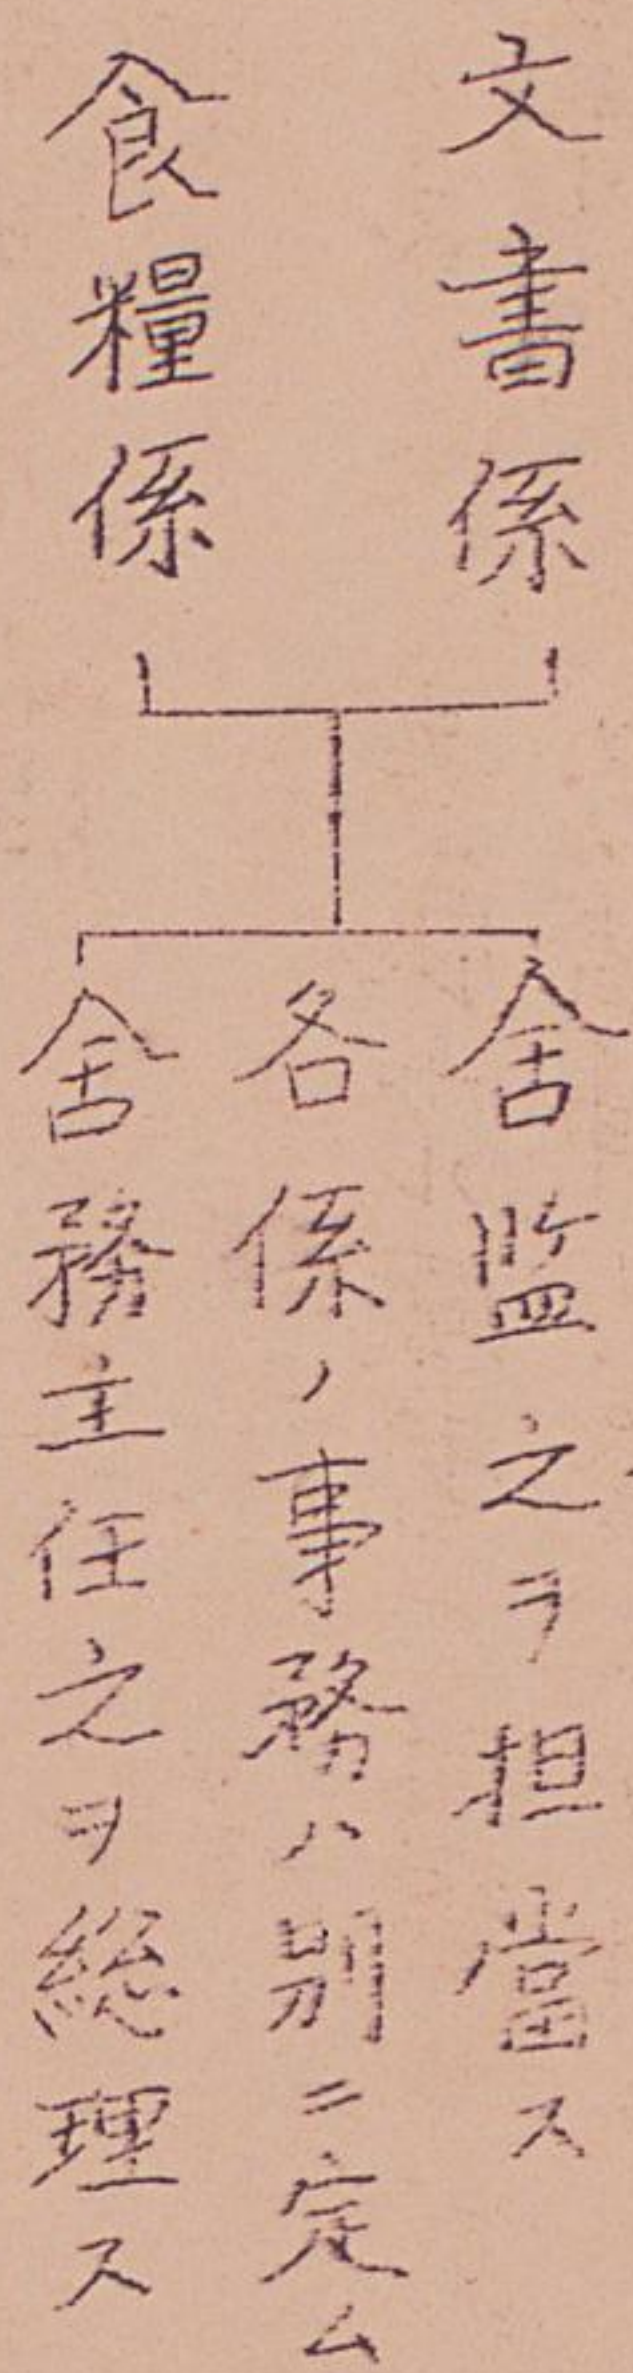 文書係
食糧係
舎監之ヲ担當ス
各係ノ事務ハ別ニ定ム
舎務主任之ヲ総理ス